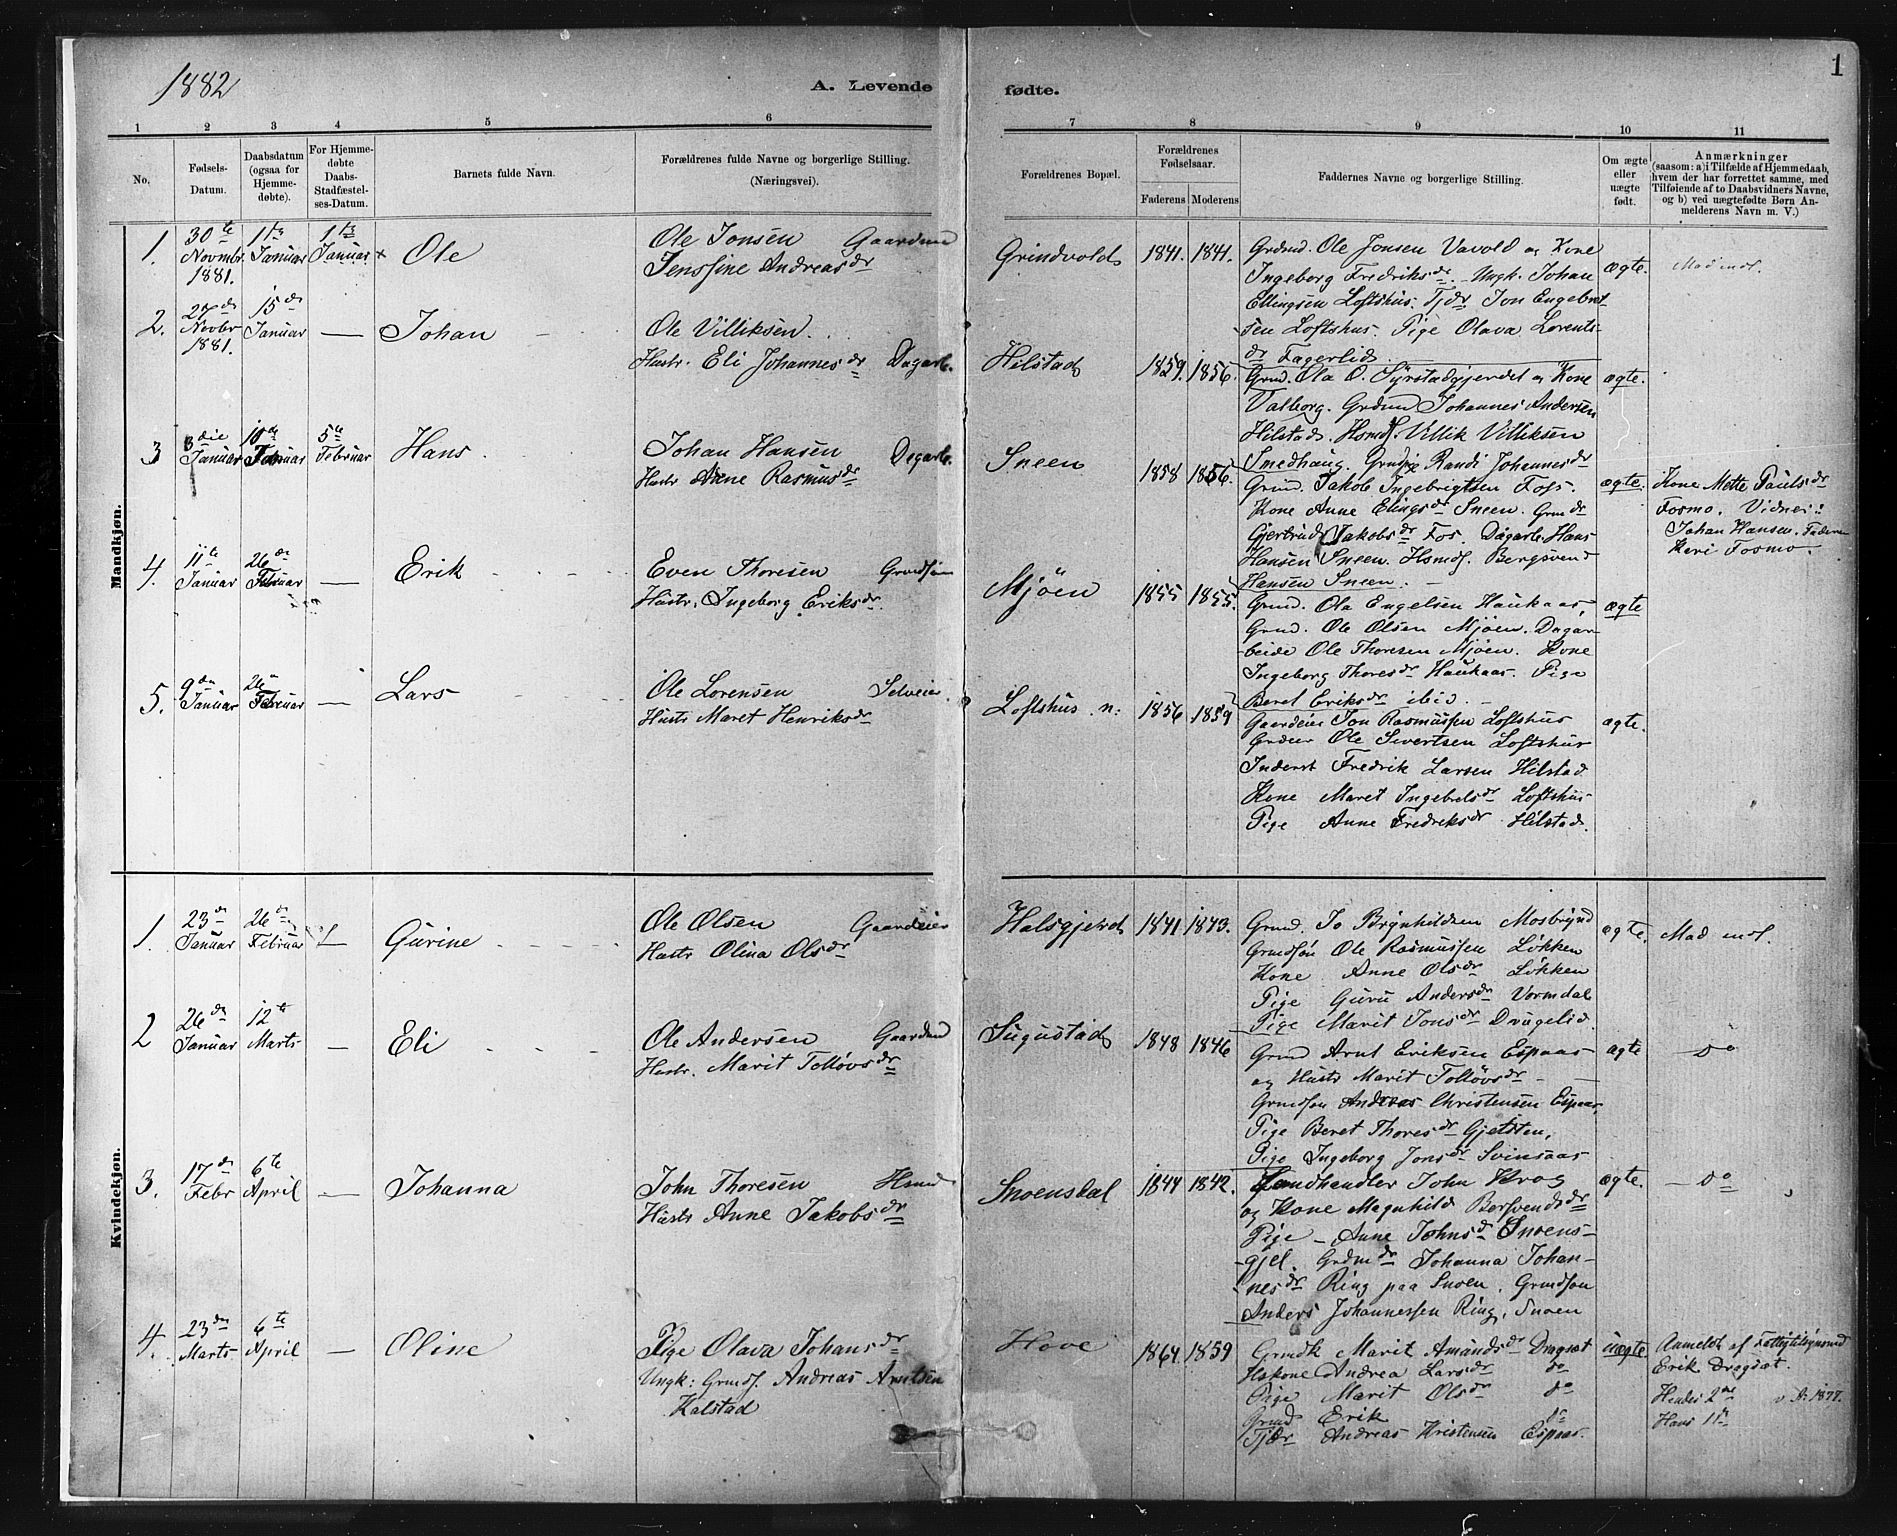 1882
A. Levende fødte.
1
1 2 3 4 5 6 7 8 9 10 11
No.
Fødsels-Datum.
Daabsdatum (ogsaa for Hjemme-døbte).
For Hjemme-døbte Daabs-Stadfæstel-ses-Datum.
Barnets fulde Navn.
Forældrenes fulde Navne og borgerlige Stilling.
(Næringsvei).
Forældrenes Bopæl.
Forældrenes Fødselsaar.
Faderens Moderens
Faddernes Navne og borgerlige Stilling.
Om ægte eller uægte født.
Anmærkninger
(saasom: a) i Tilfælde af Hjemmedaab, hvem der har forrettet samme, med Tilføiende af to Daabsvidners Navne, og b) ved uægtefødte Børn An-melderens Navn m. V.)
Mandkjøn.
1. 30te Novmbr 1881. 1ste Januar 1ste Januar Ole
Ole Jonsen Gaardm
Jenssine Andreasdr
Grindvold 1841. 1841.
Grdmd. Ole Jonsen Vavold og Kone
Ingeborg Fredriksdr. Ungk. Johan
Ellingsen Loftshus. Tjdr Jon Engebret-
sen Loftshus. Pige Olava Lorents-
dr Fagerlid.
ægte.
Mad mdl.
2. 27de Novbr 1881. 15de Januar — Johan
Ole Villiksen.
Hustr. Eli Johannesdr Dagarb.
Hilstad 1859. 1856.
Grmd. Ola O. Syrstadgjerdet og Kone
Valborg. Grdmd Johannes Andersen
Hilstad. Hsmdf. Villik Villiksen
Smedhaug. Grmdpige Randi Johannesdr
ægte.
3 3die Januar 10de Januar 5te Februar Hans
Johan Hansen Dagarb.
Hustr Anne Rasmusdr
Sneen 1858 1856.
Grmd. Jakob Ingebrigtsen Fos.
Kone Anne Elingsdr Sneen. Grmdr
Gjertrud Jakobsdr Fos. Dagarb. Hans
Hansen Sneen. Hsmdf. Bergsvend
Hansen Sneen. —
ægte.
Kone Mette Paulsdr
Fosmo. Vidner:
Johan Hansen. Faderen
Kari Fosmo.
4. 11te Januar 26de Februar — Erik
Even Thoresen Grmdsøn
Hustr. Ingeborg Eriksdr.
Mjøen 1855 1855.
Grmd. Ola Engelsen Haukaas,
Grmd. Ole Olsen Mjøen. Dagar-
beide Ole Thoresen Mjøen. Kone
Ingeborg Thoresdr Haukaas. Pige
Beret Eriksdr ibid. —
ægte
5. 9de Januar 26de Februar — Lars
Ole Lorensen Selveier
Hustr Maret Henriksdr
Loftshus n: 1856 1859
Gaardeier Jon Rasmussen Loftshus
Grdeier Ole Sivertsen Loftshus
Inderst Fredrik Larsen Hilstad
Kone Maret Ingebrisdr Loftshus
Pige Anne Fredriksdr Hilstad.
ægte.
Kvindekjøn.
1. 23de Januar 26de Februar — Gurine
Ole Olsen Gaardeier
Hustr Olina Olsdr
Halsgjerd 1841 1843.
Grmd. Jo Brynhildsen Mosbrynd
Grmdsøn Ole Rasmussen Løkken
Kone Anne Olsdr Løkken
Pige Guru Andersdr Vormdal
Pige Marit Jonsdr Drugelid.
ægte.
Mad mdl.
2 26de Januar 12te Marts — Eli
Ole Andersen Gaardmd
Hustr. Marit Tolløvsdr
Sugustad 1848 1846
Grmd Arnt Eriksen Espaas
og Hustr Marit Tolløvsdr — —
Grmdsøn Andreas Christensen Espaas
Pige Beret Thoresdr Gjetsten,
Pige Ingeborg Jonsdr Svinsaas
ægte
— do
3. 17de Febr 6te April — Johanna
John Thoresen Hmd
Hustr Anne Jakobsdr
Snoensdal 1844 1842.
Landhandler John Krog
og Kone Magnhild Bersvendsdr
Pige — Anne Johnsdr Snoens-
gjel. Grdmdr Johanna Johan-
nesdr Ring paa Snoen. Grmdsøn
Anders Johannessen Ring, Snoen
ægte.
— do
4. 23de Marts 6te April — Oline
Pige Olava Johansdr
Ungk: Grmdf. Andreas Arntsen
Kalstad
Hove 1864 1859
Grmdk Marit Amundsdr Dragset
Hskone Andrea Larsdr do
Pige Marit Olsdr do
Grmd Erik do
Tjdr Andreas Kristensen Espaas.
uægte
Anmeldt af
Erik Dragset.
Hendes 2det v. A. 1877.
Hans 1ste